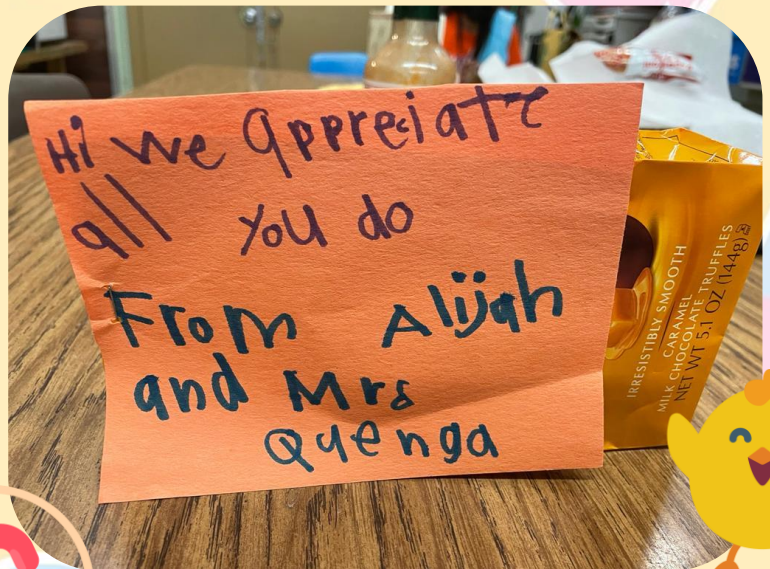 Hi we appreciate
all you do
From Alijah
and Mrs
Quenga
IRRESISTIBLY SMOOTH
CARAMEL
MILK CHOCOLATE TRUFFLES
NET WT 5.1 OZ (144g)